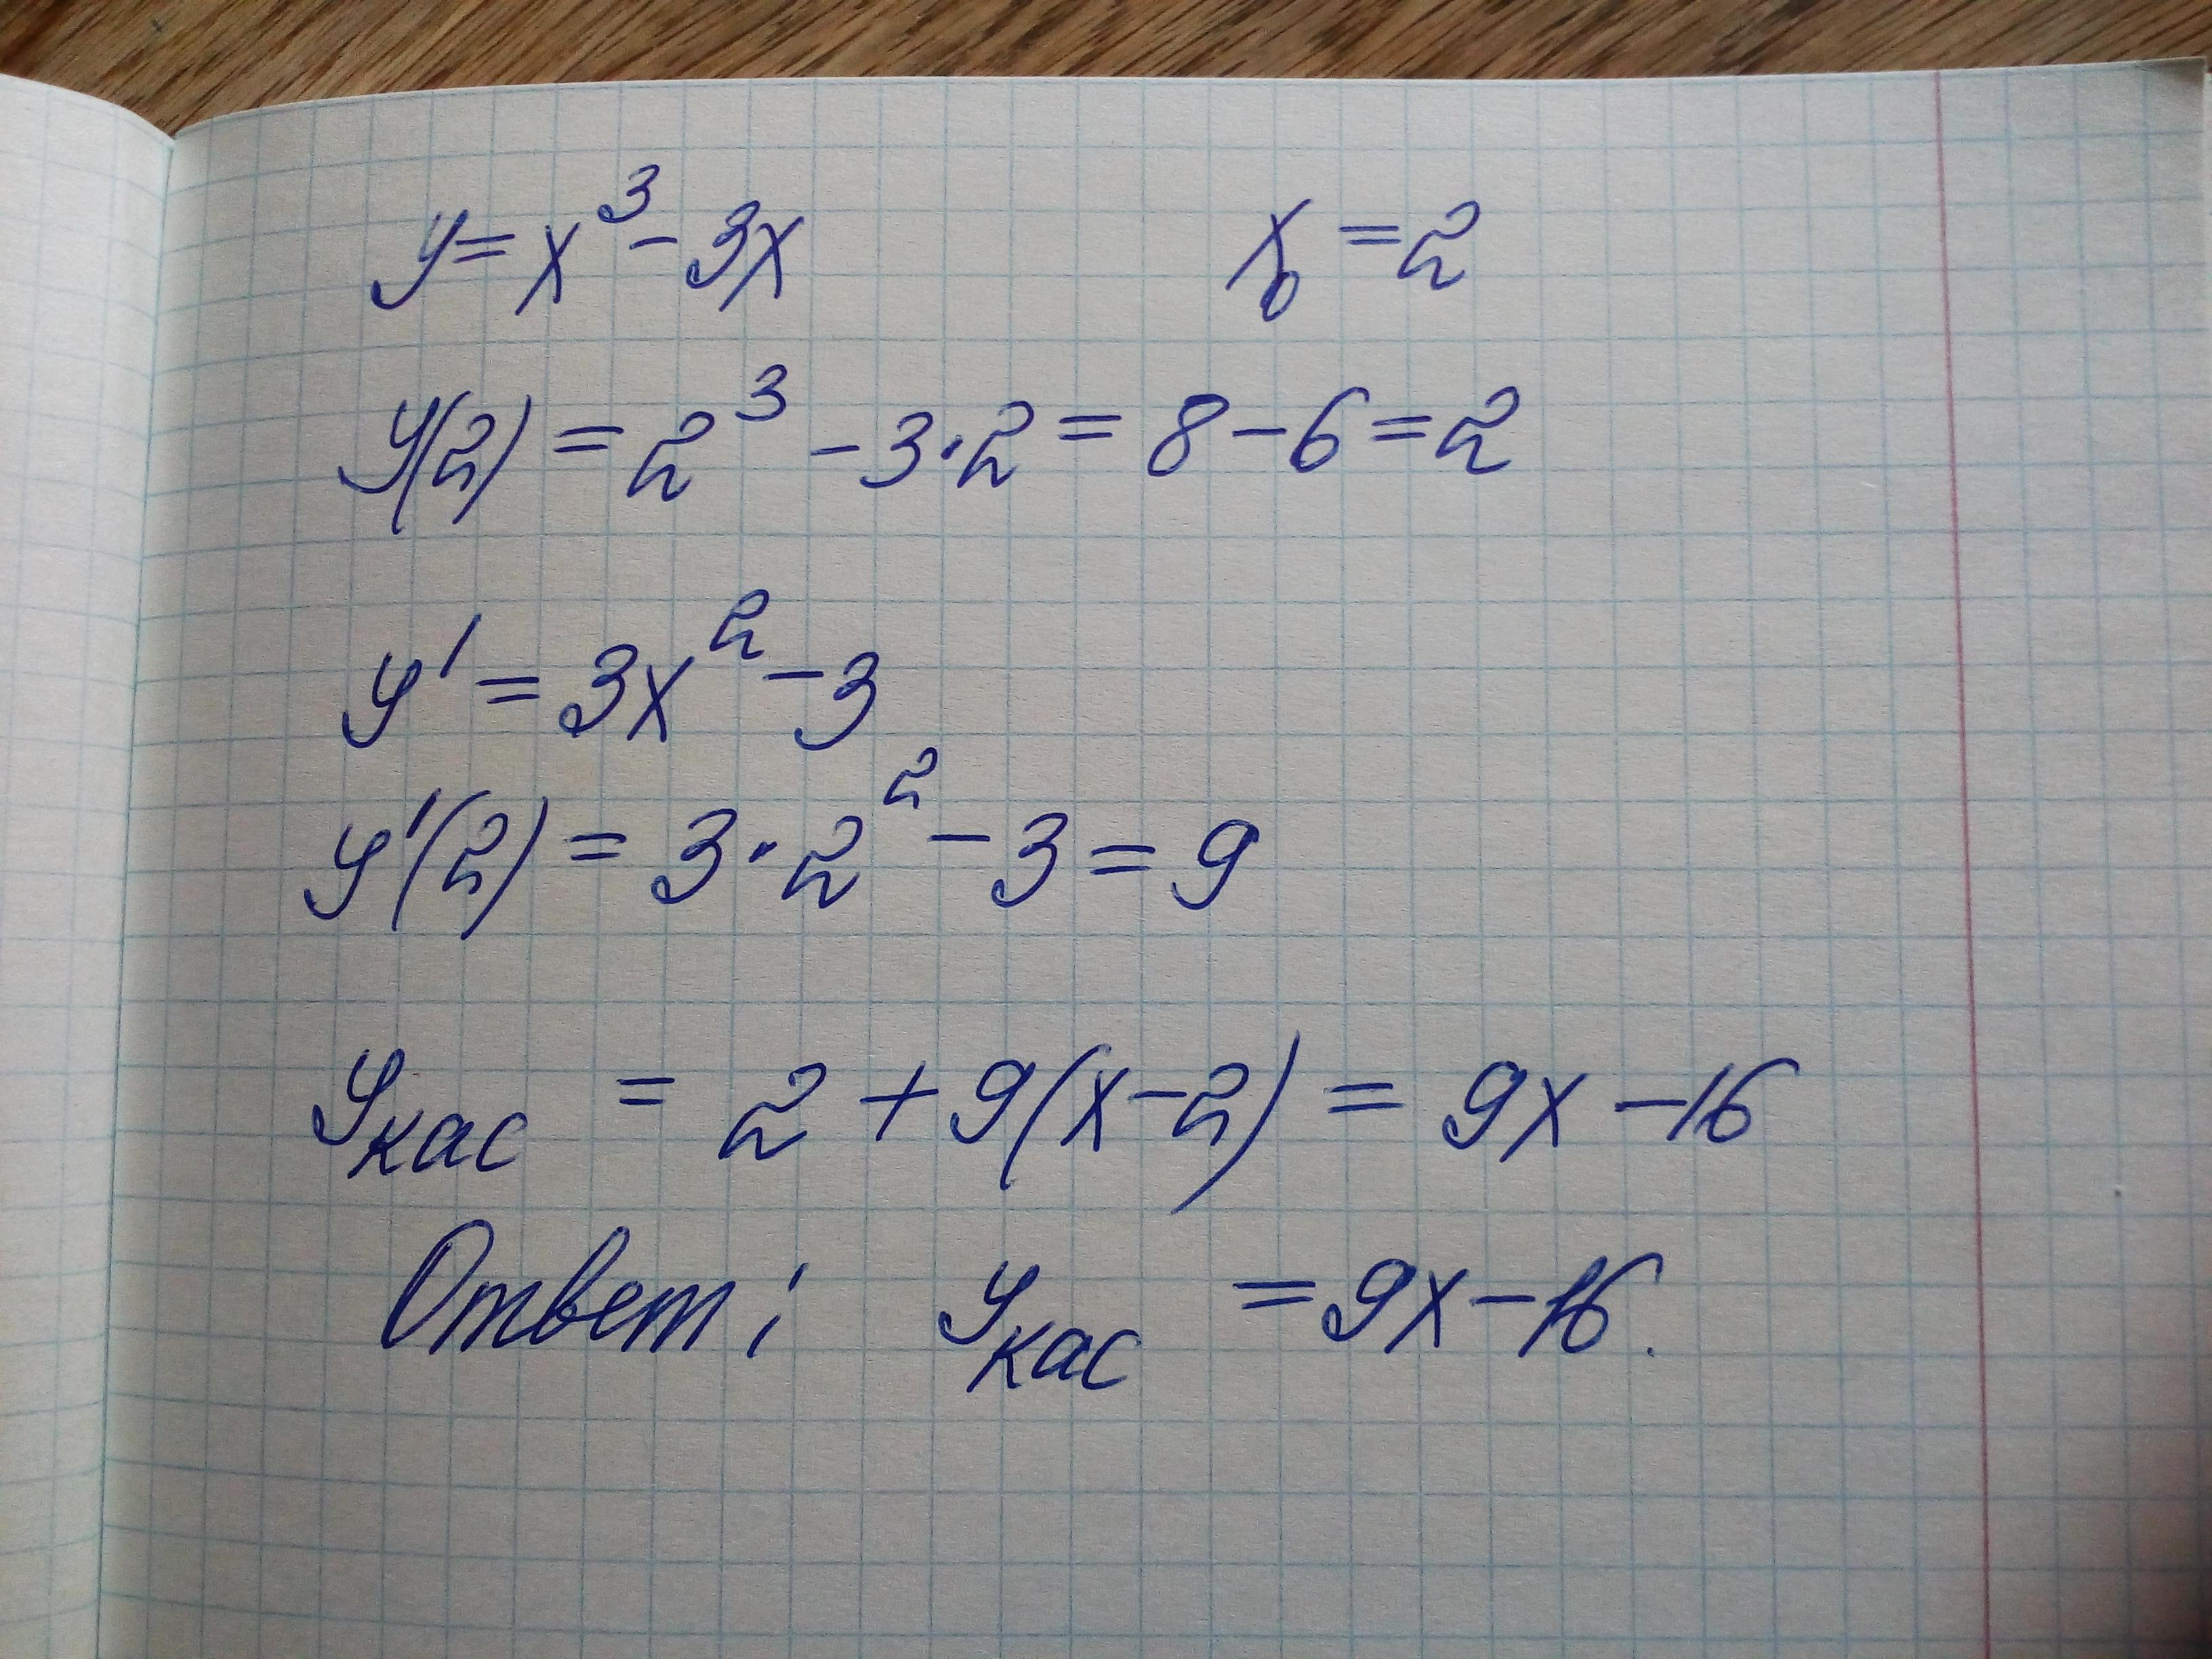 y = x³ - 3x x₀ = 2
y(2) = 2³ - 3·2 = 8 - 6 = 2
y' = 3x² - 3
y'(2) = 3·2² - 3 = 9
yкас = 2 + 9(x - 2) = 9x - 16
Ответ: yкас = 9x - 16.